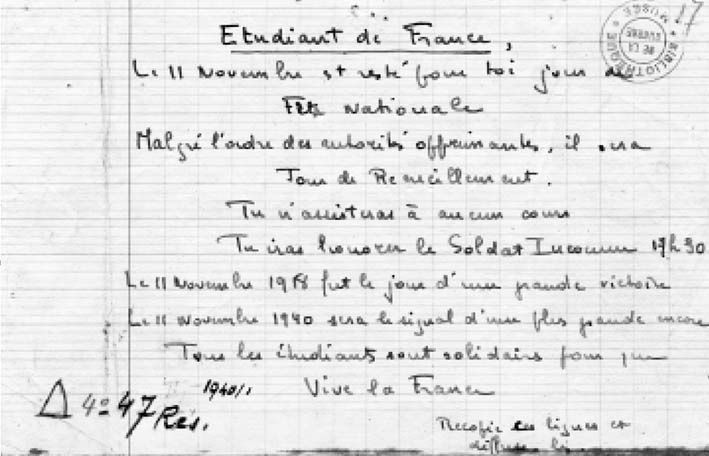 17
BIBLIOTHEQUE * MUSEE *
DE LA
GUERRE
Etudiant de France,
Le 11 Novembre est resté pour toi jour de
Fête Nationale
Malgré l'ordre des autorités opprimantes, il sera
Jour de Recueillement.
Tu n'assisteras à aucun cours
Tu iras honorer le Soldat Inconnu 17h30
Le 11 Novembre 1918 fut le jour d'une grande victoire
Le 11 Novembre 1940 sera le signal d'une plus grande encore
Tous les étudiants sont solidaires pour que
Vive la France
1940/1
Δ 4º 47 Res.
Recopie ces lignes et
diffuse les.